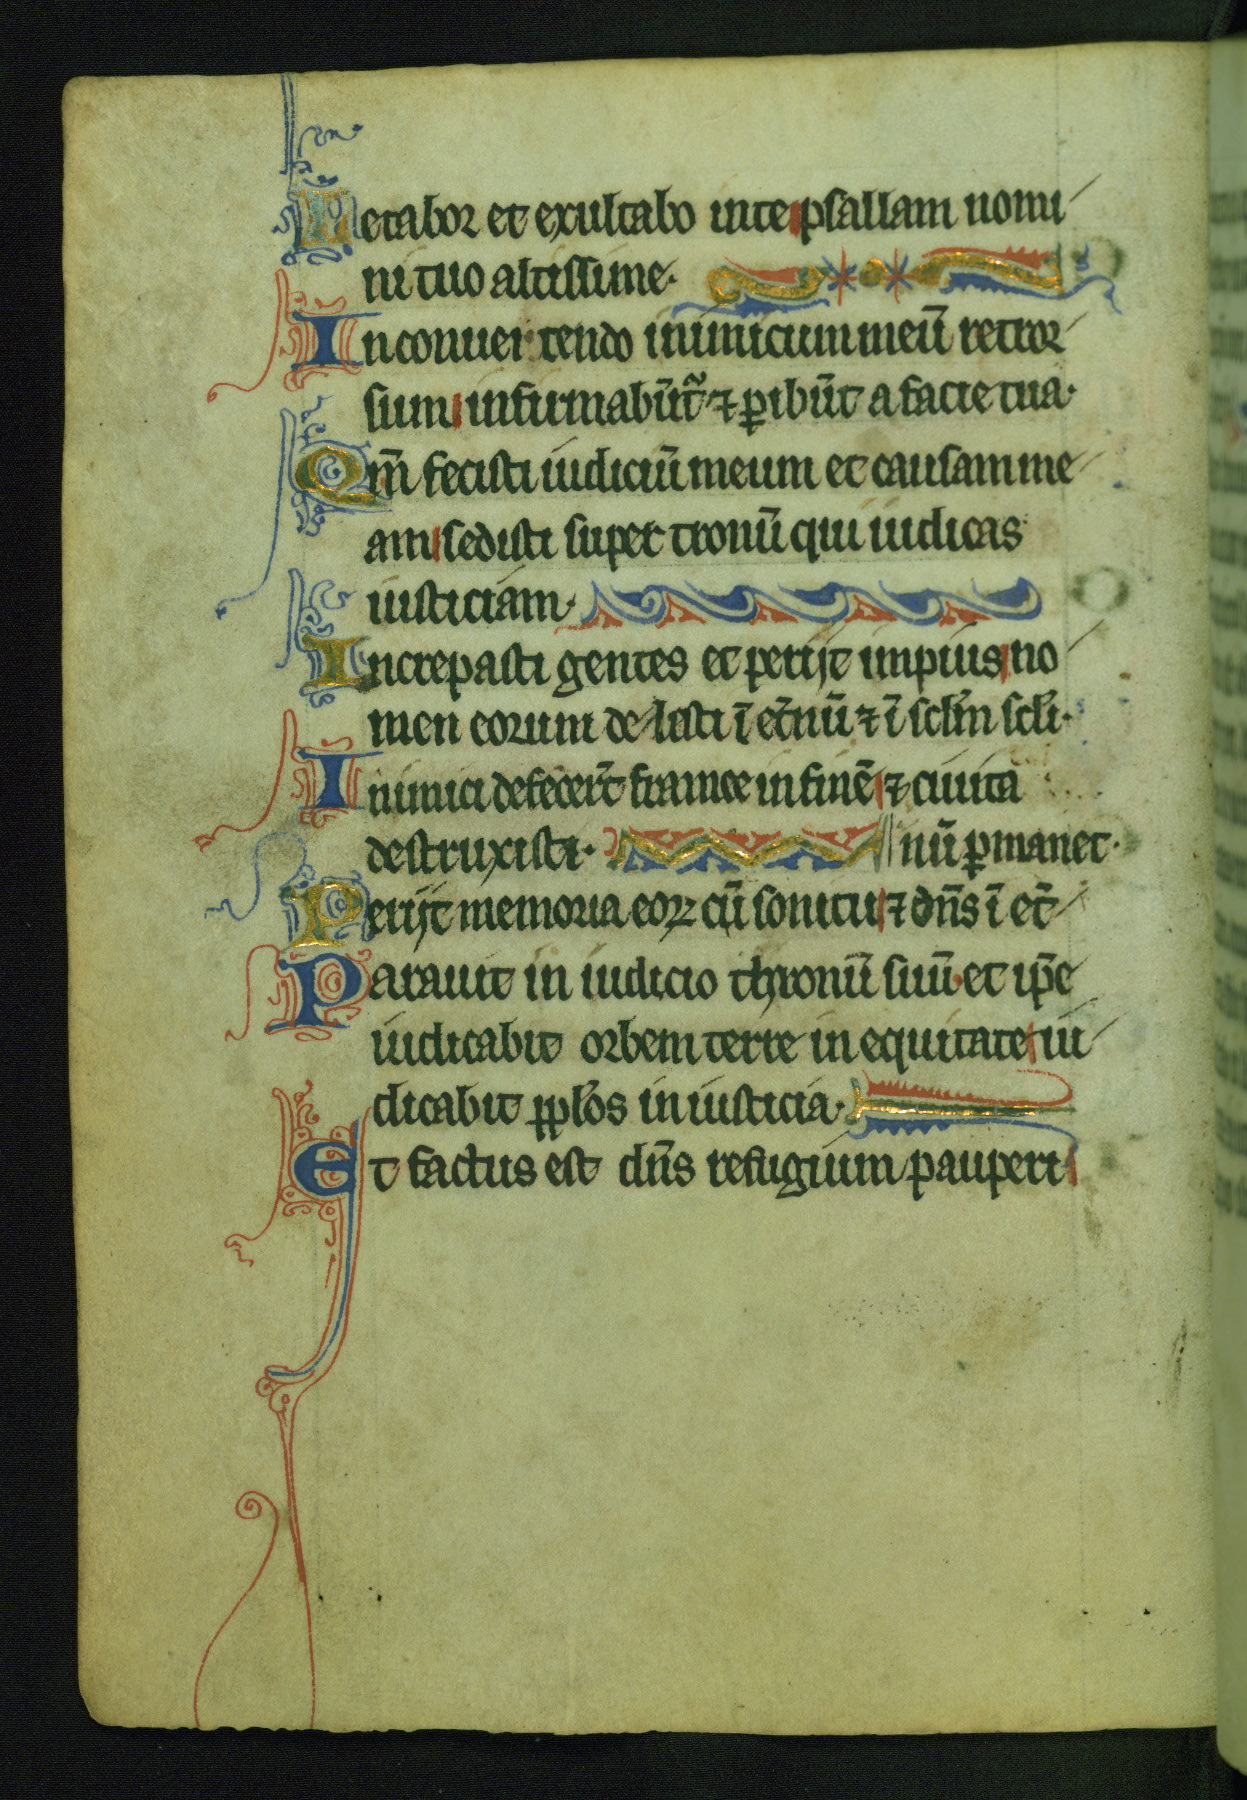 Letabor et exultabo in te psallam nomi
ni tuo altissime·
In conuertendo inimicum meū retror
sum infirmabūt᷑ ⁊ ꝑibūt a facie tua·
Qm̄ fecisti iudiciū meum et causam me
am sedisti super tronū qui iudicas
iusticiam·
Increpasti gentes et perijt impius no
men eorum delesti ī et̄nū ⁊ ī sclm̄ sclī·
Inimici defecert̄ framee in finē ⁊ ciuita
destruxisti· nū ꝑmanet·
Perijt memoria eoꝝ cū sonitu ⁊ dn̄s ī et̄
Parauit in iudicio thronū suū et ip̄e
iudicabit orbem terre in equitate iu
dicabit pplōs in iusticia·
Et factus est dn̄s refugium pauperi